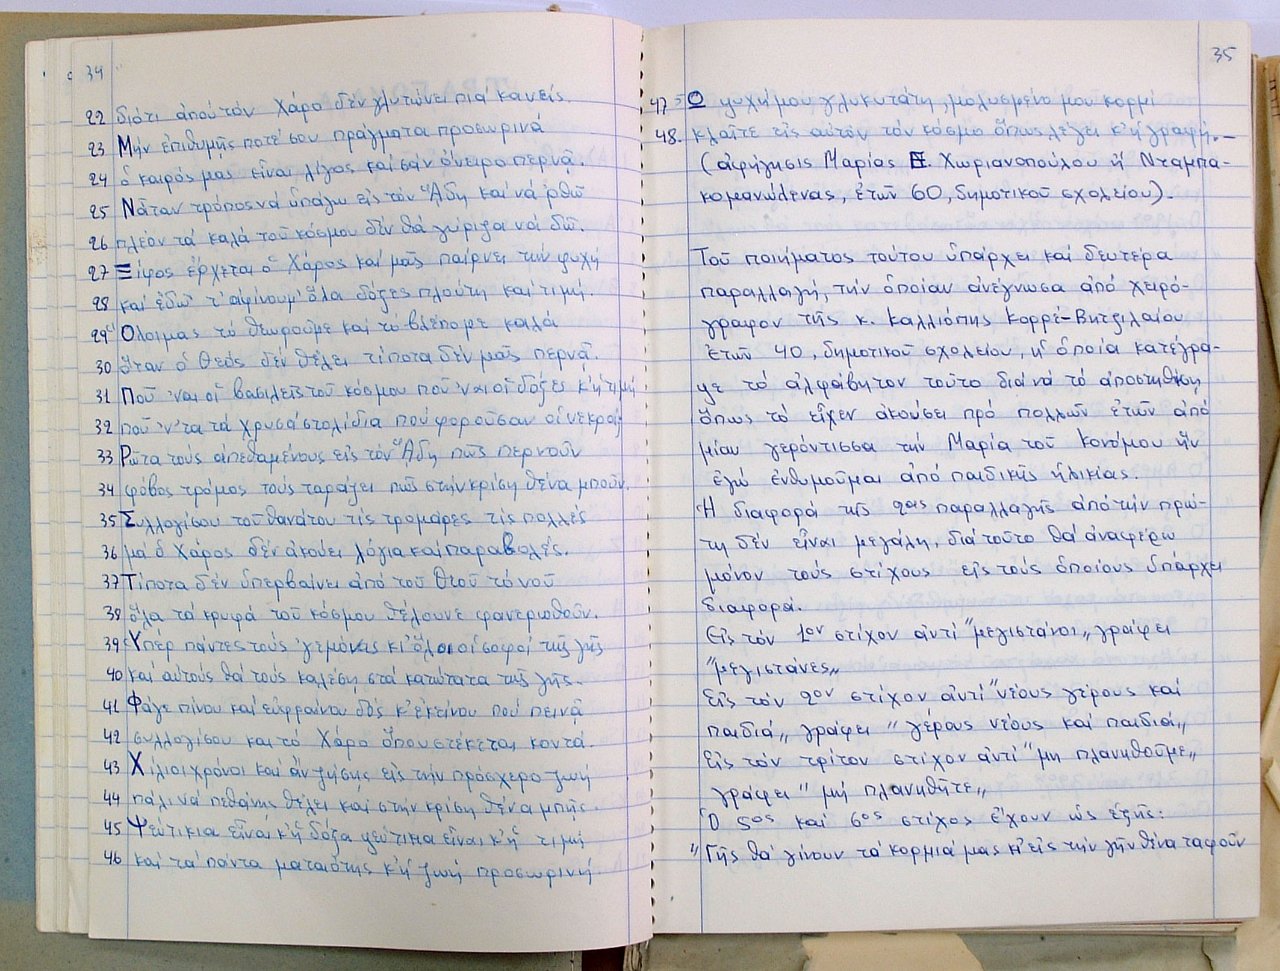 34
22 διότι ἀπού τόν Χάρο δέν γλυτώνει πιά κανείς.
23 Μήν ἐπιθυμῇς ποτέ σου πράγματα προσωρινά
24 ὁ καιρός μας εἶναι λίγος καί σάν ὄνειρο περνᾷ.
25 Νἄταν τρόπος νά ὑπάγω εἰς τόν Ἅδη καί νά 'ρθῶ
26 πλέον τά καλά τοῦ κόσμου δέν θά γύριζα νά δῶ.
27 Ξίφος ἔρχεται ὁ Χάρος καί μᾶς παίρνει τήν ψυχή
28 καί ἐδῶ τ' ἀφίνουμ' ὅλα δόξες πλούτη καί τιμή.
29 Ὅλοι μας τό θεωροῦμε καί τό βλέπομε καλά
30 ὅταν ὁ Θεός δέν θέλει τίποτα δέν μᾶς περνᾷ.
31 Ποῦ 'ναι οἱ βασιλεῖς τοῦ κόσμου ποῦ 'ναι οἱ δόξες κ' ἡ τιμή
32 ποῦ 'ν' τα τά χρυσά στολίδια πού φοροῦσαν οἱ νεκροί;
33 Ρώτα τούς ἀπεθαμένους εἰς τόν Ἅδη πῶς περνοῦν
34 φόβος τρόμος τούς ταράζει πῶς στήν κρίση θέ νά μποῦν.
35 Συλλογίσου τοῦ θανάτου τίς τρομάρες τίς πολλές
36 μά ὁ Χάρος δέν ἀκούει λόγια καί παραβολές.
37 Τίποτα δέν ὑπερβαίνει ἀπό τοῦ Θεοῦ τό νοῦ
38 ὅλα τά κρυφά τοῦ κόσμου θέλουνε φανερωθοῦν.
39 Ὑπέρ πάντες τούς 'γεμόνες κι' ὅλοι οἱ σοφοί τῆς γῆς
40 καί αὐτούς θά τούς καλέσῃ στά κατώτατα τῆς γῆς.
41 Φάγε πίνου καί εὐφραίνου δός κ' ἐκείνου πού πεινᾷ
42 συλλογίσου καί τό Χάρο ὅπου στέκεται κοντά.
43 Χίλιοι χρόνοι καί ἄν ζήσῃς εἰς τήν πρόσχερο ζωή
44 πάλι νά πεθάνῃς θέλει καί στήν κρίση θέ νά μπῇς.
45 Ψεύτικια εἶναι κ' ἡ δόξα ψεύτικα εἶναι κ' ἡ τιμή
46 καί τά πάντα ματαιότης κ' ἡ ζωή προσωρινή
35
47 Ὦ ψυχή μου γλυκυτάτη, μολυσμένο μου κορμί
48. κλαῖτε εἰς αὐτόν τόν κόσμο ὅπως λέγει κ' ἡ γραφή.—
(ἀφήγησις Μαρίας Ε. Χωριανοπούλου ἤ Νταμπα-
κομανώλενας, ἐτῶν 60, δημοτικοῦ σχολείου).
Τοῦ ποιήματος τούτου ὑπάρχει καί δευτέρα
παραλλαγή, τήν ὁποίαν ἀνέγνωσα ἀπό χειρό-
γραφον τῆς κ. Καλλιόπης Κορρέ-Βιτζιλαίου
ἐτῶν 40, δημοτικοῦ σχολείου, ἡ ὁποία κατέγρα-
ψε τό ἀλφάβητον τοῦτο διά νά τό ἀποστηθίσῃ
ὅπως τό εἶχεν ἀκούσει πρό πολλῶν ἐτῶν ἀπό
μίαν γερόντισσα τήν Μαρία τοῦ Κονόμου ἥν
ἐγώ ἐνθυμοῦμαι ἀπό παιδικῆς ἡλικίας.
Ἡ διαφορά τῆς 2ας παραλλαγῆς ἀπό τήν πρώ-
τη δέν εἶναι μεγάλη, διά τοῦτο θά ἀναφέρω
μόνον τούς στίχους εἰς τούς ὁποίους ὑπάρχει
διαφορά.
Εἰς τόν 1ον στίχον ἀντί "μεγιστάνοι,, γράφει
"μεγιστάνες,,
Εἰς τόν 2ον στίχον ἀντί "νέους γέρους καί
παιδιά,, γράφει "γέρους νέους καί παιδιά,,
Εἰς τόν τρίτον στίχον ἀντί "μη πλανηθοῦμε,,
γράφει "μή πλανηθῆτε,,
Ὁ 5ος καί 6ος στίχος ἔχουν ὡς ἑξῆς:
"Γῆς θά γίνουν τά κορμιά μας κ' εἰς τήν γῆν θέ νά ταφοῦν